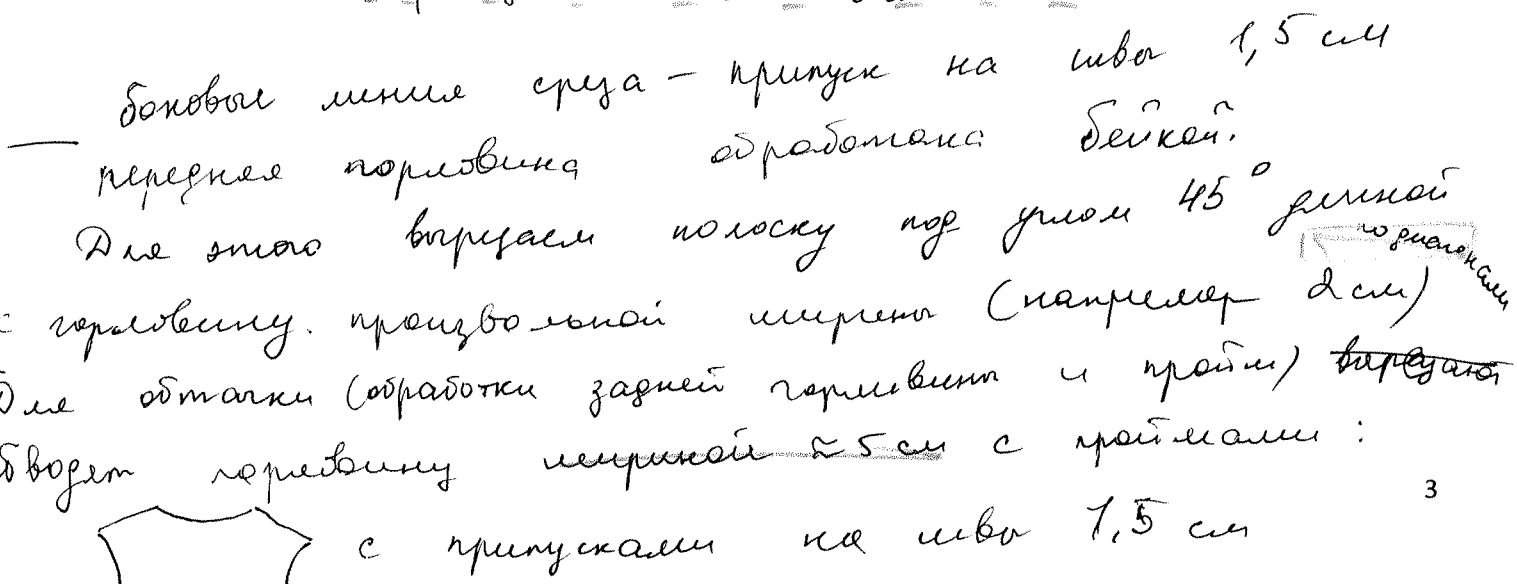 боковые линия среза – припуск на швы 1,5 см
передняя горловина обработана бейкой.
Для этого вырезаем полоску под углом 45° длиной
по диагонали
с горловину. произвольной ширины (например 2 см)
Для обтачки (обработки задней горловины и пройм) вырезают
обводят горловину шириной ≈ 5 см с проймами:
3
с припусками на швы 1,5 см